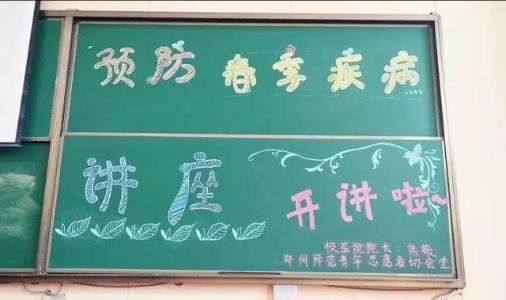 预防春季疾病
讲座 开讲啦~
校医院院长:焦敏
郑州师范青年志愿者协会宣